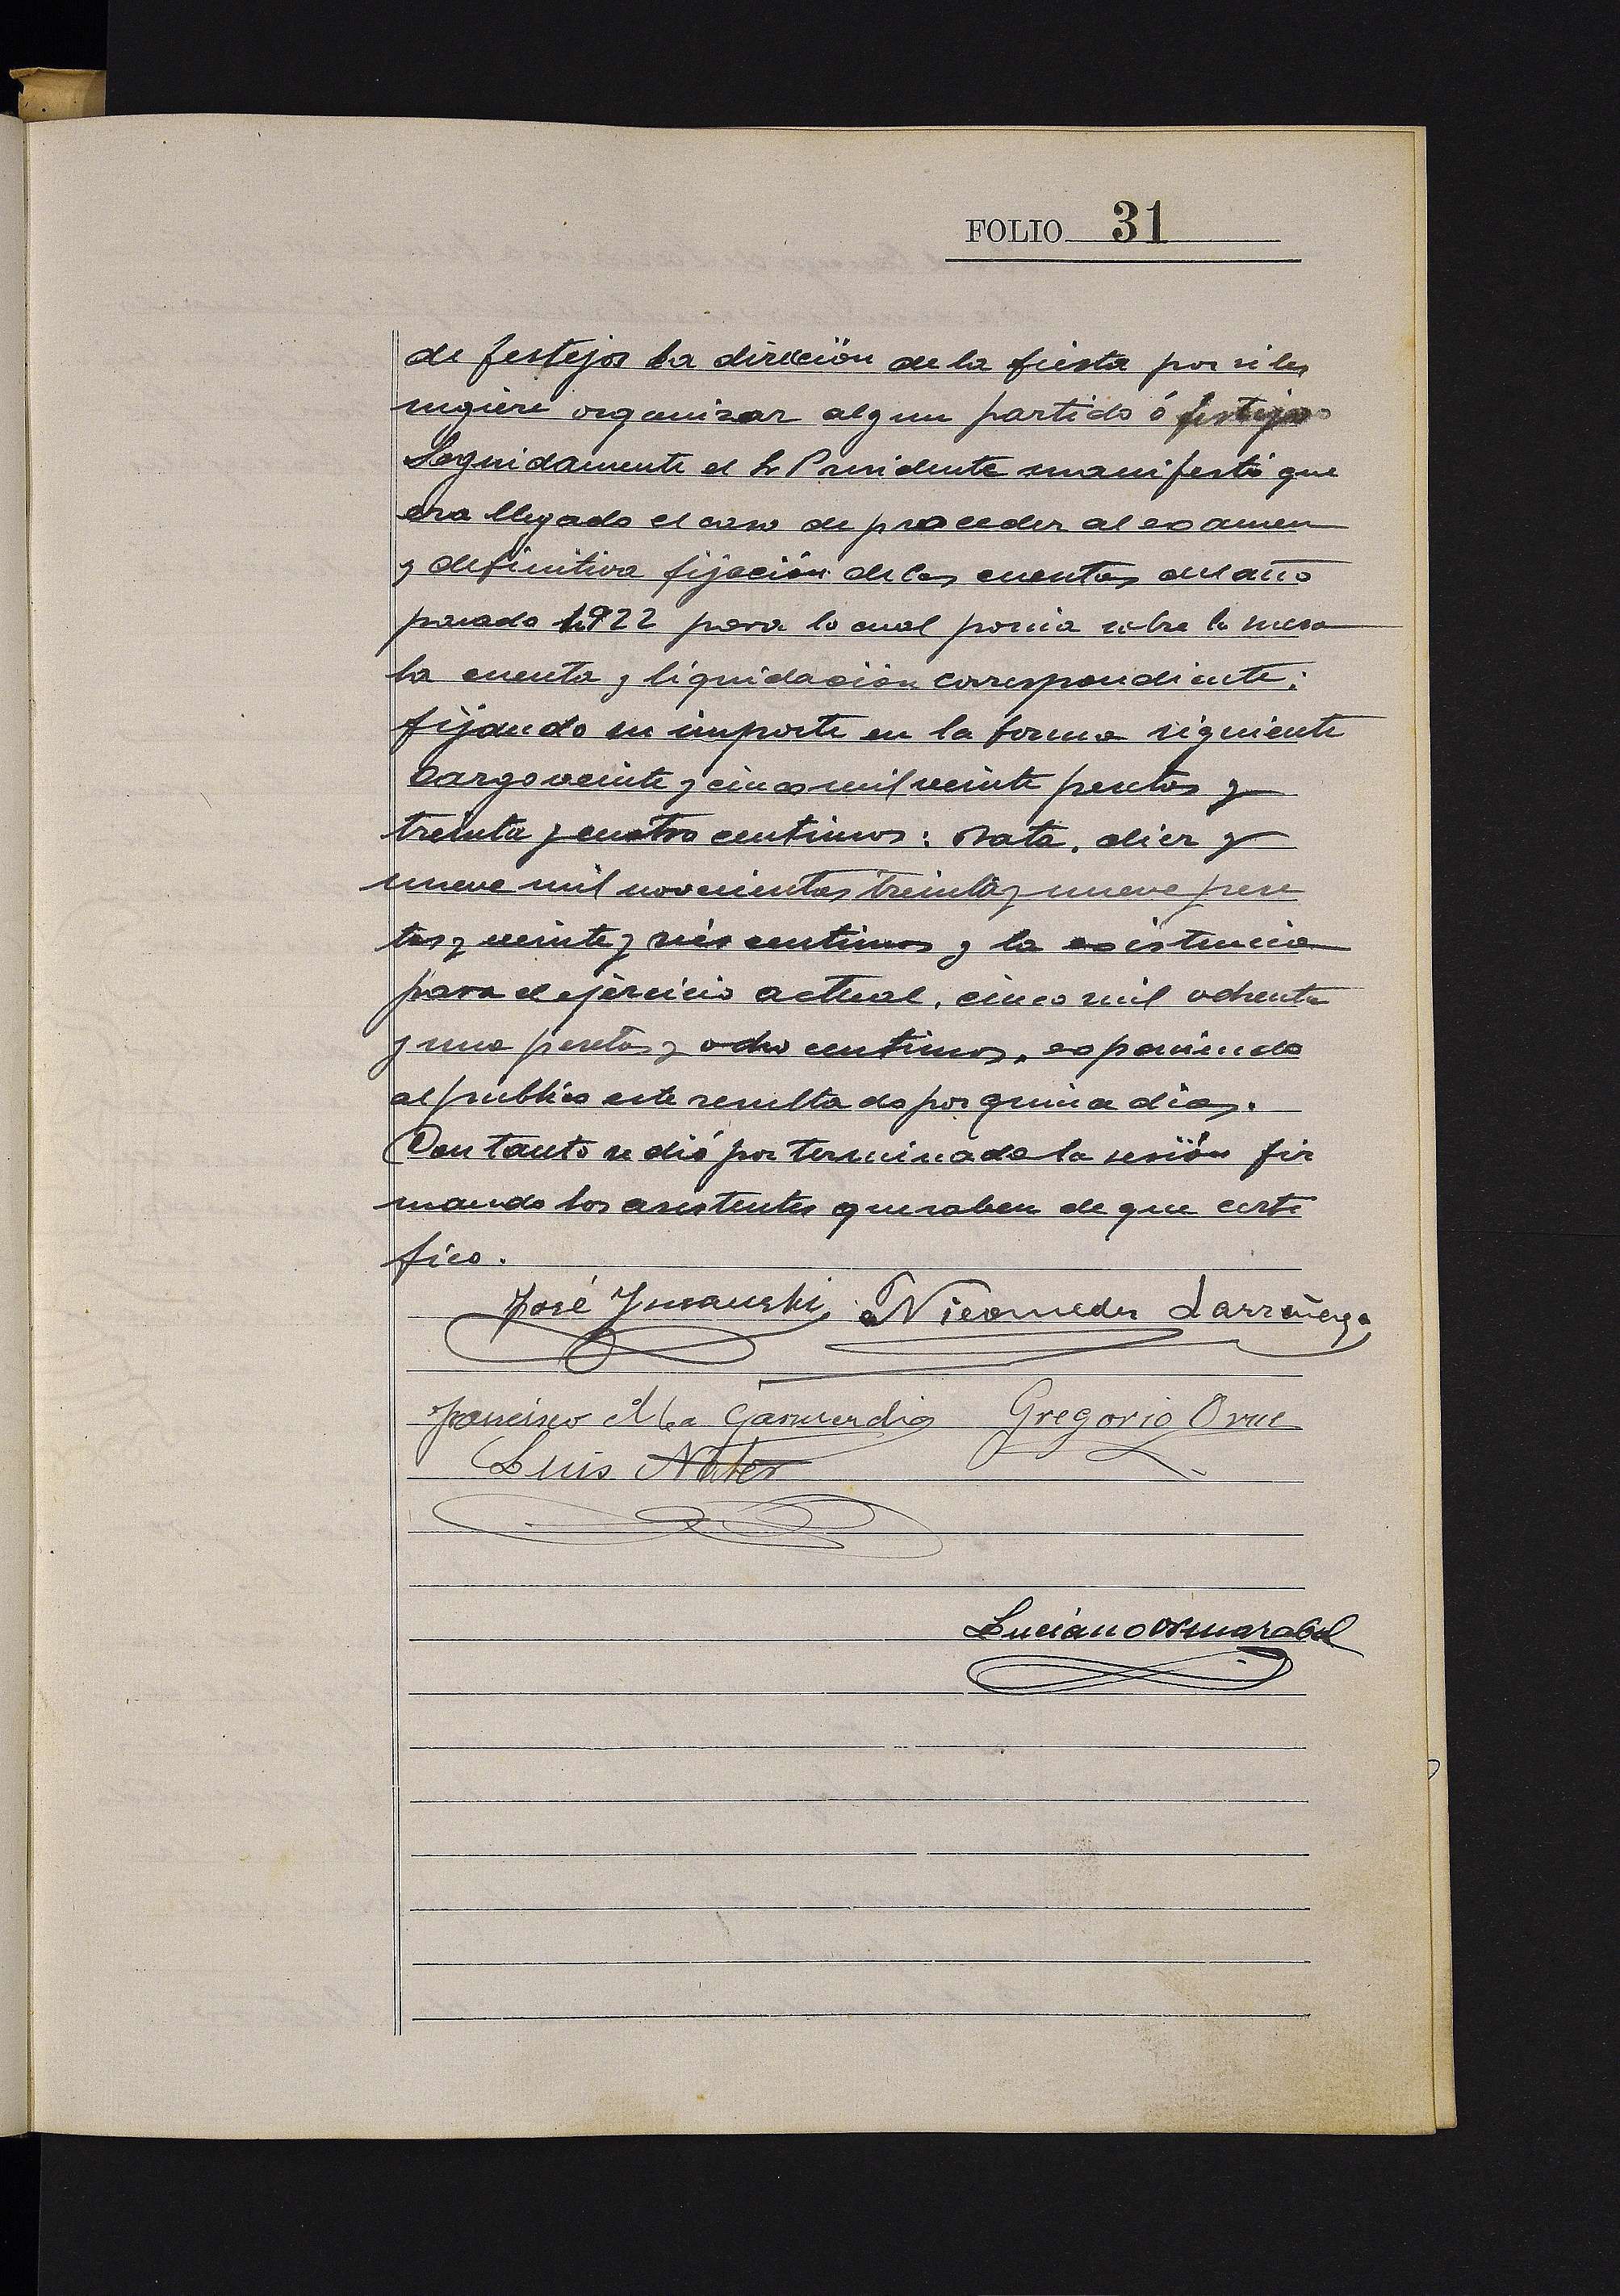 FOLIO 31
de festejos la dirección de la fiesta por si les
sugiere organizar algun partido ó festejo
Seguidamente el Sr Presidente manifestó que
era llegado el caso de proceder al examen
y definitiva fijación de las cuentas del año
pasado 1922 para lo cual ponia sobre la mesa
la cuenta y liquidación correspondiente;
fijando su importe en la forma siguiente
Cargo veinte y cinco mil veinte pesetas y
treinta y cuatro centimos: Data, diez y
nueve mil novecientas treinta y nueve pese
tas y veinte y seis centimos y la existencia
para el ejercicio actual, cinco mil ochenta
y una pesetas y ocho centimos, exponiendo
al publico este resultado por quince dias.
Con tanto se dió por terminada la sesión fir
mando los asistentes que saben de que certi
fico.
José Nicomedes Larrañaga
Francisco Alba Garmendia Gregorio Orue
Luis
Luciano